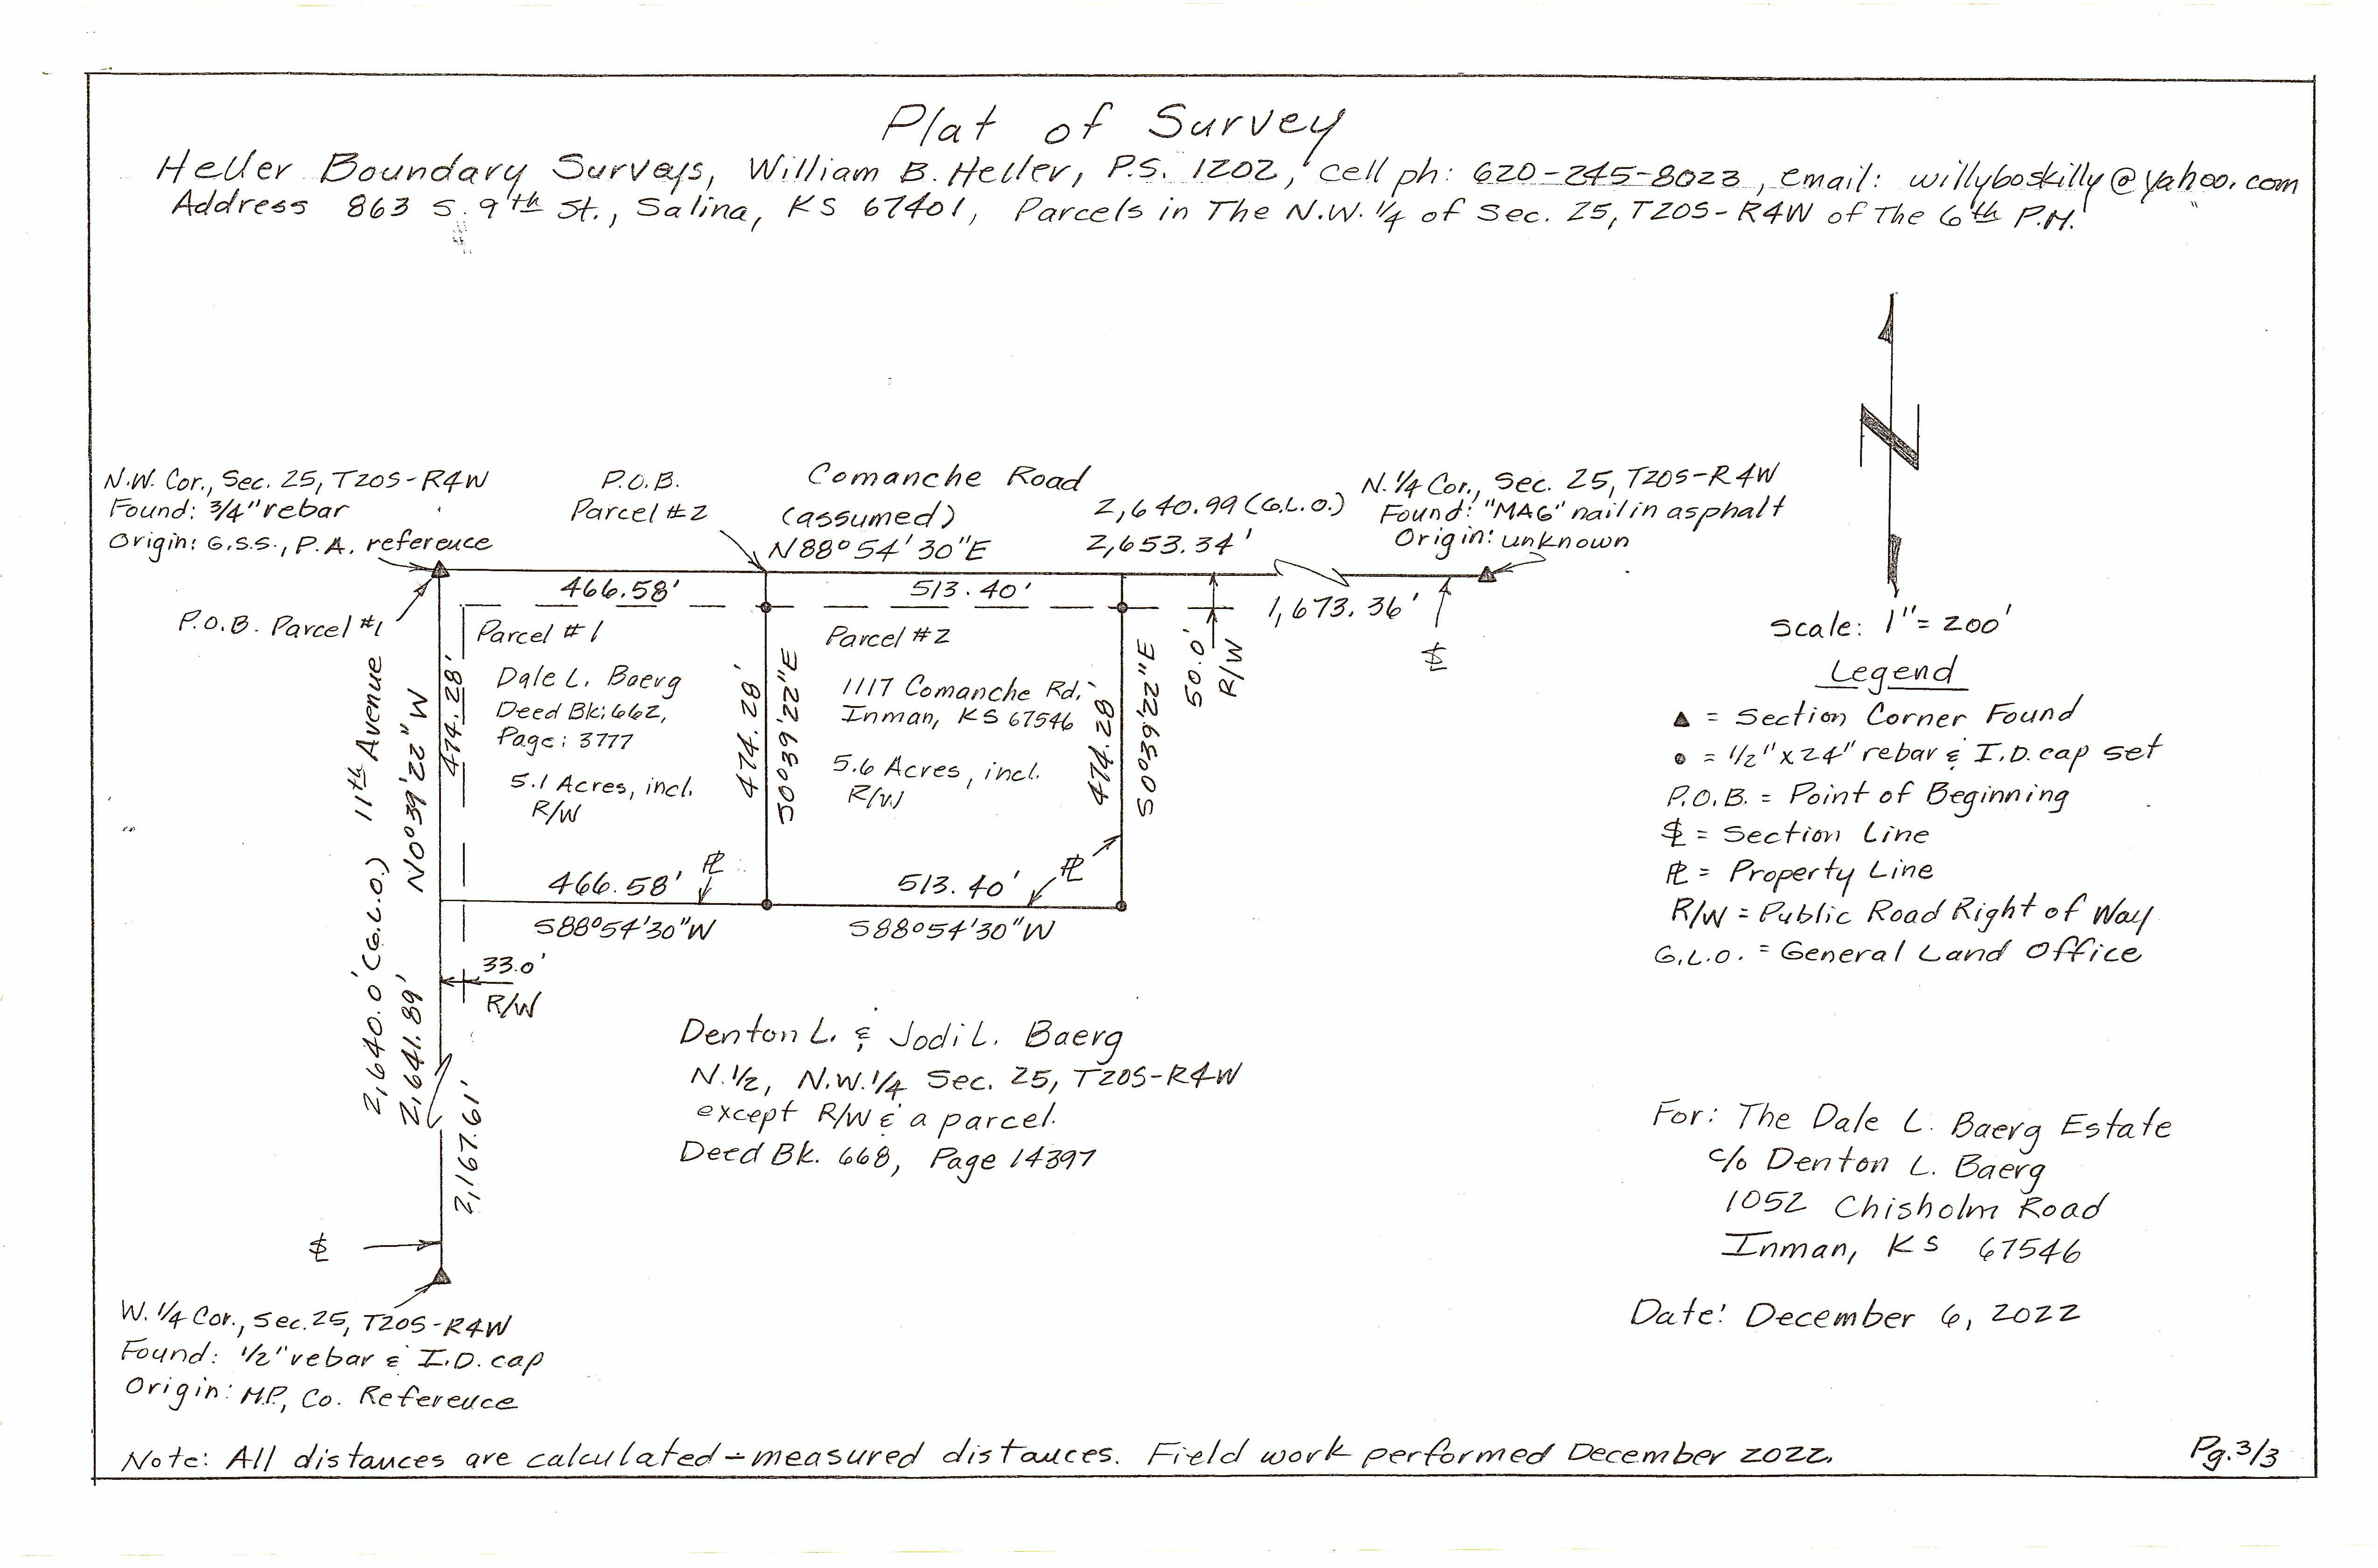 Plat of Survey
Heller Boundary Surveys, William B. Heller, P.S. 1202, cell ph: 620-245-8023, email: willyboskilly@yahoo.com
Address 863 S. 9th St., Salina, KS 67401, Parcels in The N.W. 1/4 of Sec. 25, T20S-R4W of The 6th P.M.
N.W. Cor., Sec. 25, T20S-R4W
Found: 3/4" rebar
Origin: G.S.S., P.A. reference
P.O.B. Parcel #1
P.O.B.
Parcel #2
Comanche Road
(assumed)
N88°54'30"E
2,640.99 (G.L.O.)
2,653.34'
N. 1/4 Cor., Sec. 25, T20S-R4W
Found: "MAG" nail in asphalt
Origin: unknown
466.58'
513.40'
1,673.36'
50.0'
R/W
Parcel #1
Dale L. Baerg
Deed Bk: 662,
Page: 3777
5.1 Acres, incl.
R/W
Parcel #2
1117 Comanche Rd.
Inman, KS 67546
5.6 Acres, incl.
R/W
11th Avenue
N0°39'22"W
474.28'
474.28'
S0°39'22"E
474.28'
S0°39'22"E
466.58'
S88°54'30"W
513.40'
S88°54'30"W
33.0'
R/W
2,640.0' (G.L.O.)
2,641.89'
2,167.61'
Denton L. & Jodi L. Baerg
N. 1/2, N.W. 1/4 Sec. 25, T20S-R4W
except R/W & a parcel.
Deed Bk. 668, Page 14397
W. 1/4 Cor., Sec. 25, T20S-R4W
Found: 1/2" rebar & I.D. cap
Origin: M.P., Co. Reference
N
Scale: 1" = 200'
Legend
▲ = Section Corner Found
● = 1/2" x 24" rebar & I.D. cap set
P.O.B. = Point of Beginning
= Section Line
PL = Property Line
R/W = Public Road Right of Way
G.L.O. = General Land Office
For: The Dale L. Baerg Estate
c/o Denton L. Baerg
1052 Chisholm Road
Inman, KS 67546
Date: December 6, 2022
Note: All distances are calculated-measured distances. Field work performed December 2022.
Pg. 3/3